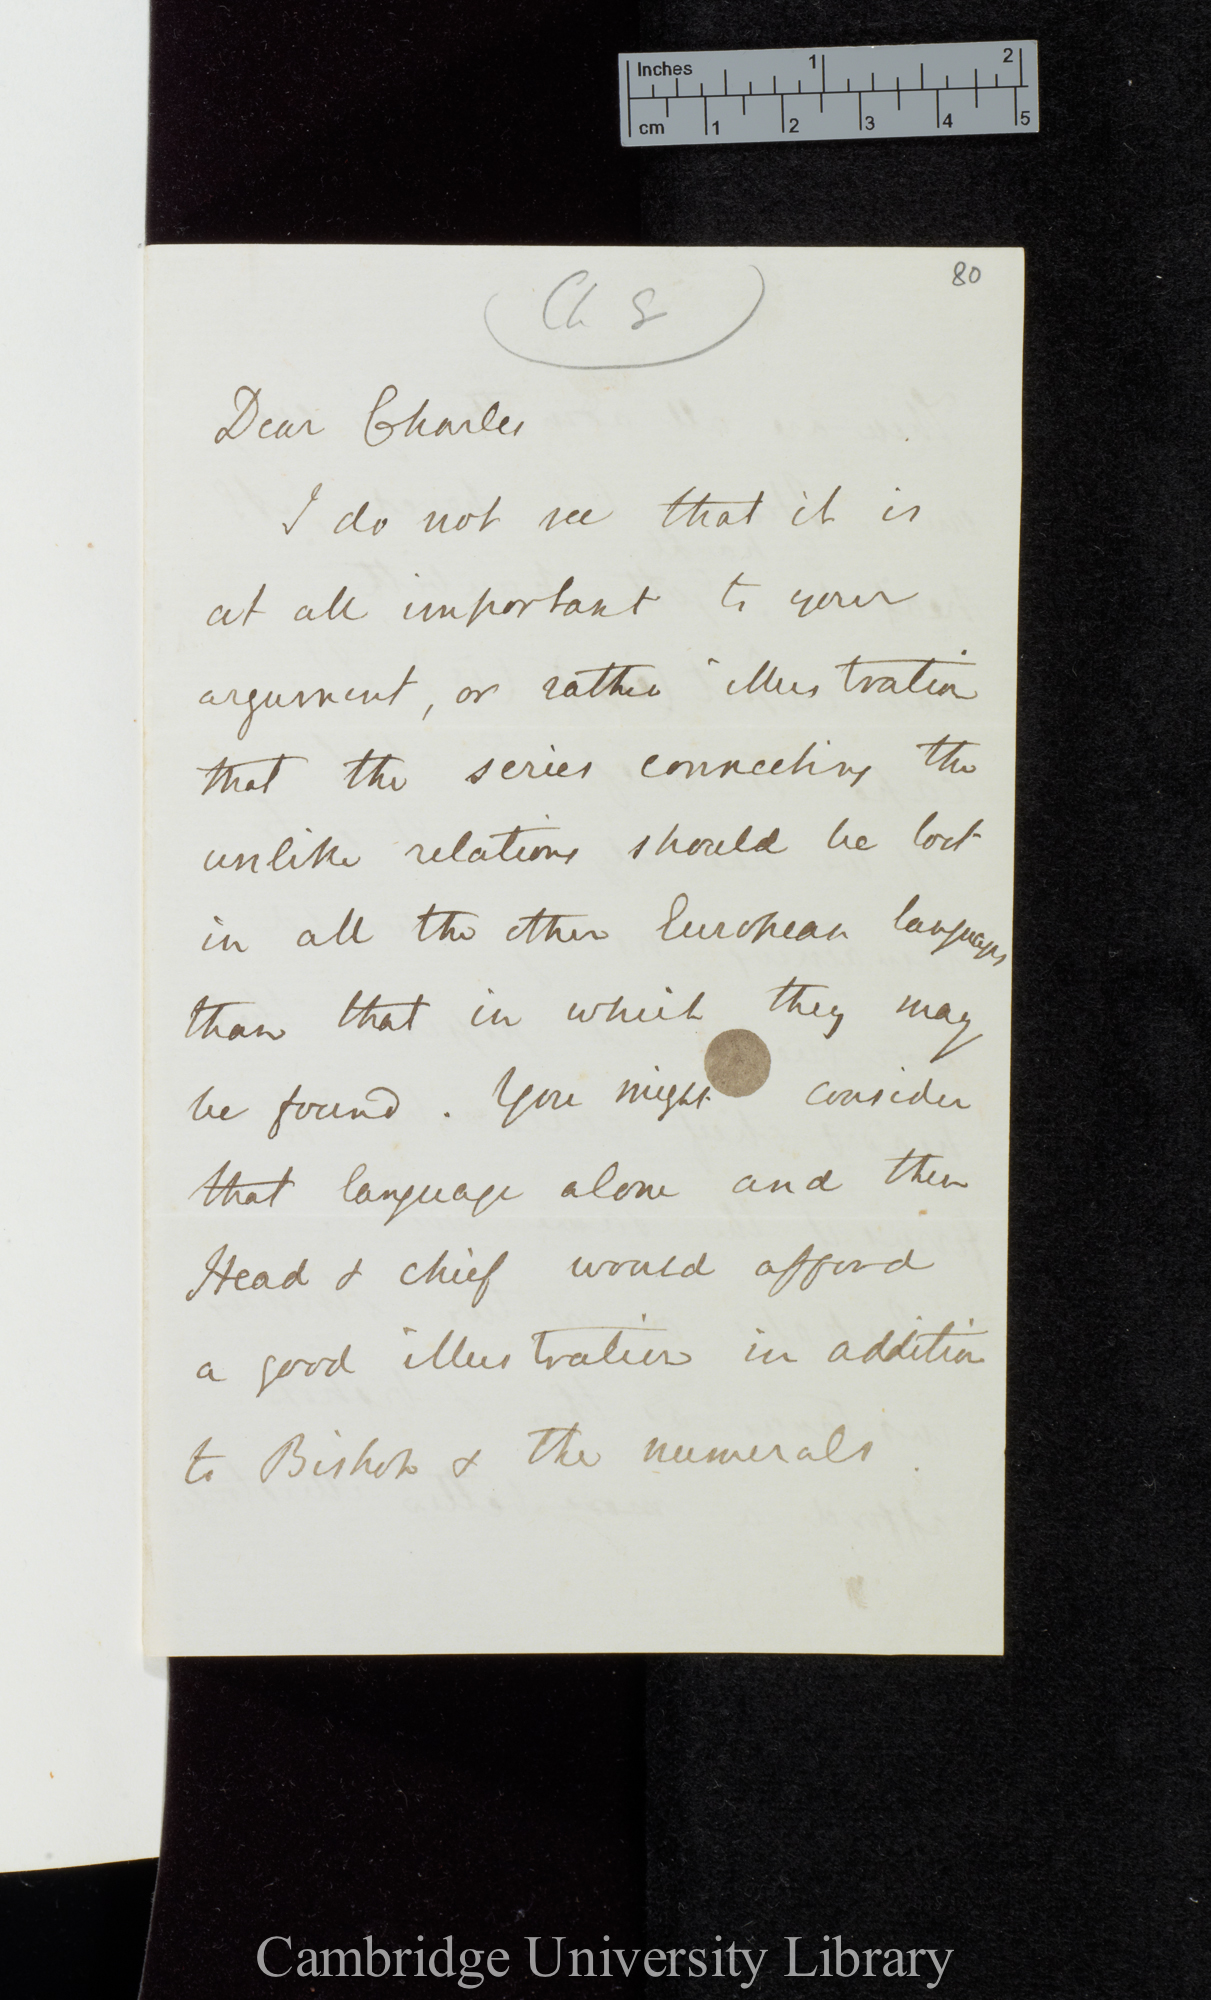 Inches 1 2
cm 1 2 3 4 5
80
Ch 8
Dear Charles
I do not see that it is
at all important to your
argument, or rather illustration
that the series connecting the
unlike relations should be lost
in all the other European languages
than that in which they may
be found. You might consider
that language alone and then
Head & chief would afford
a good illustration in addition
to Bishop & the numerals.
Cambridge University Library